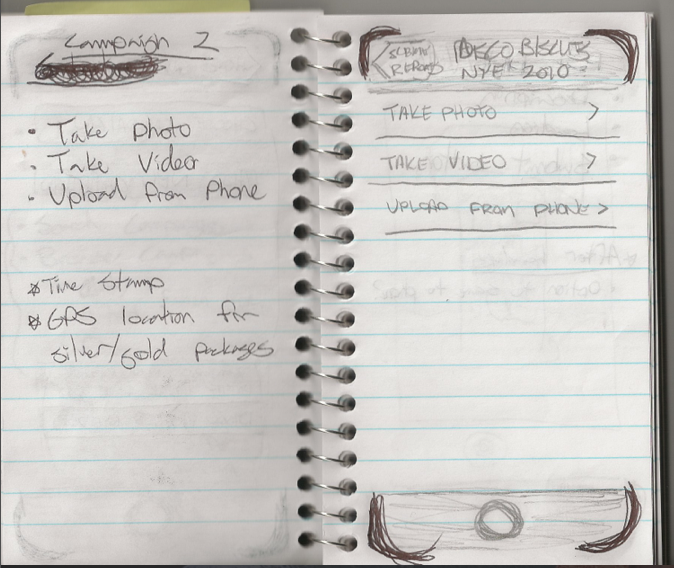 Campaign 2
• Take photo
• Take Video
• Upload from Phone
* Time Stamp
* GPS location for
silver/gold packages
DISCO BISCUITS
NYE 2010
TAKE PHOTO >
TAKE VIDEO >
UPLOAD FROM PHONE >